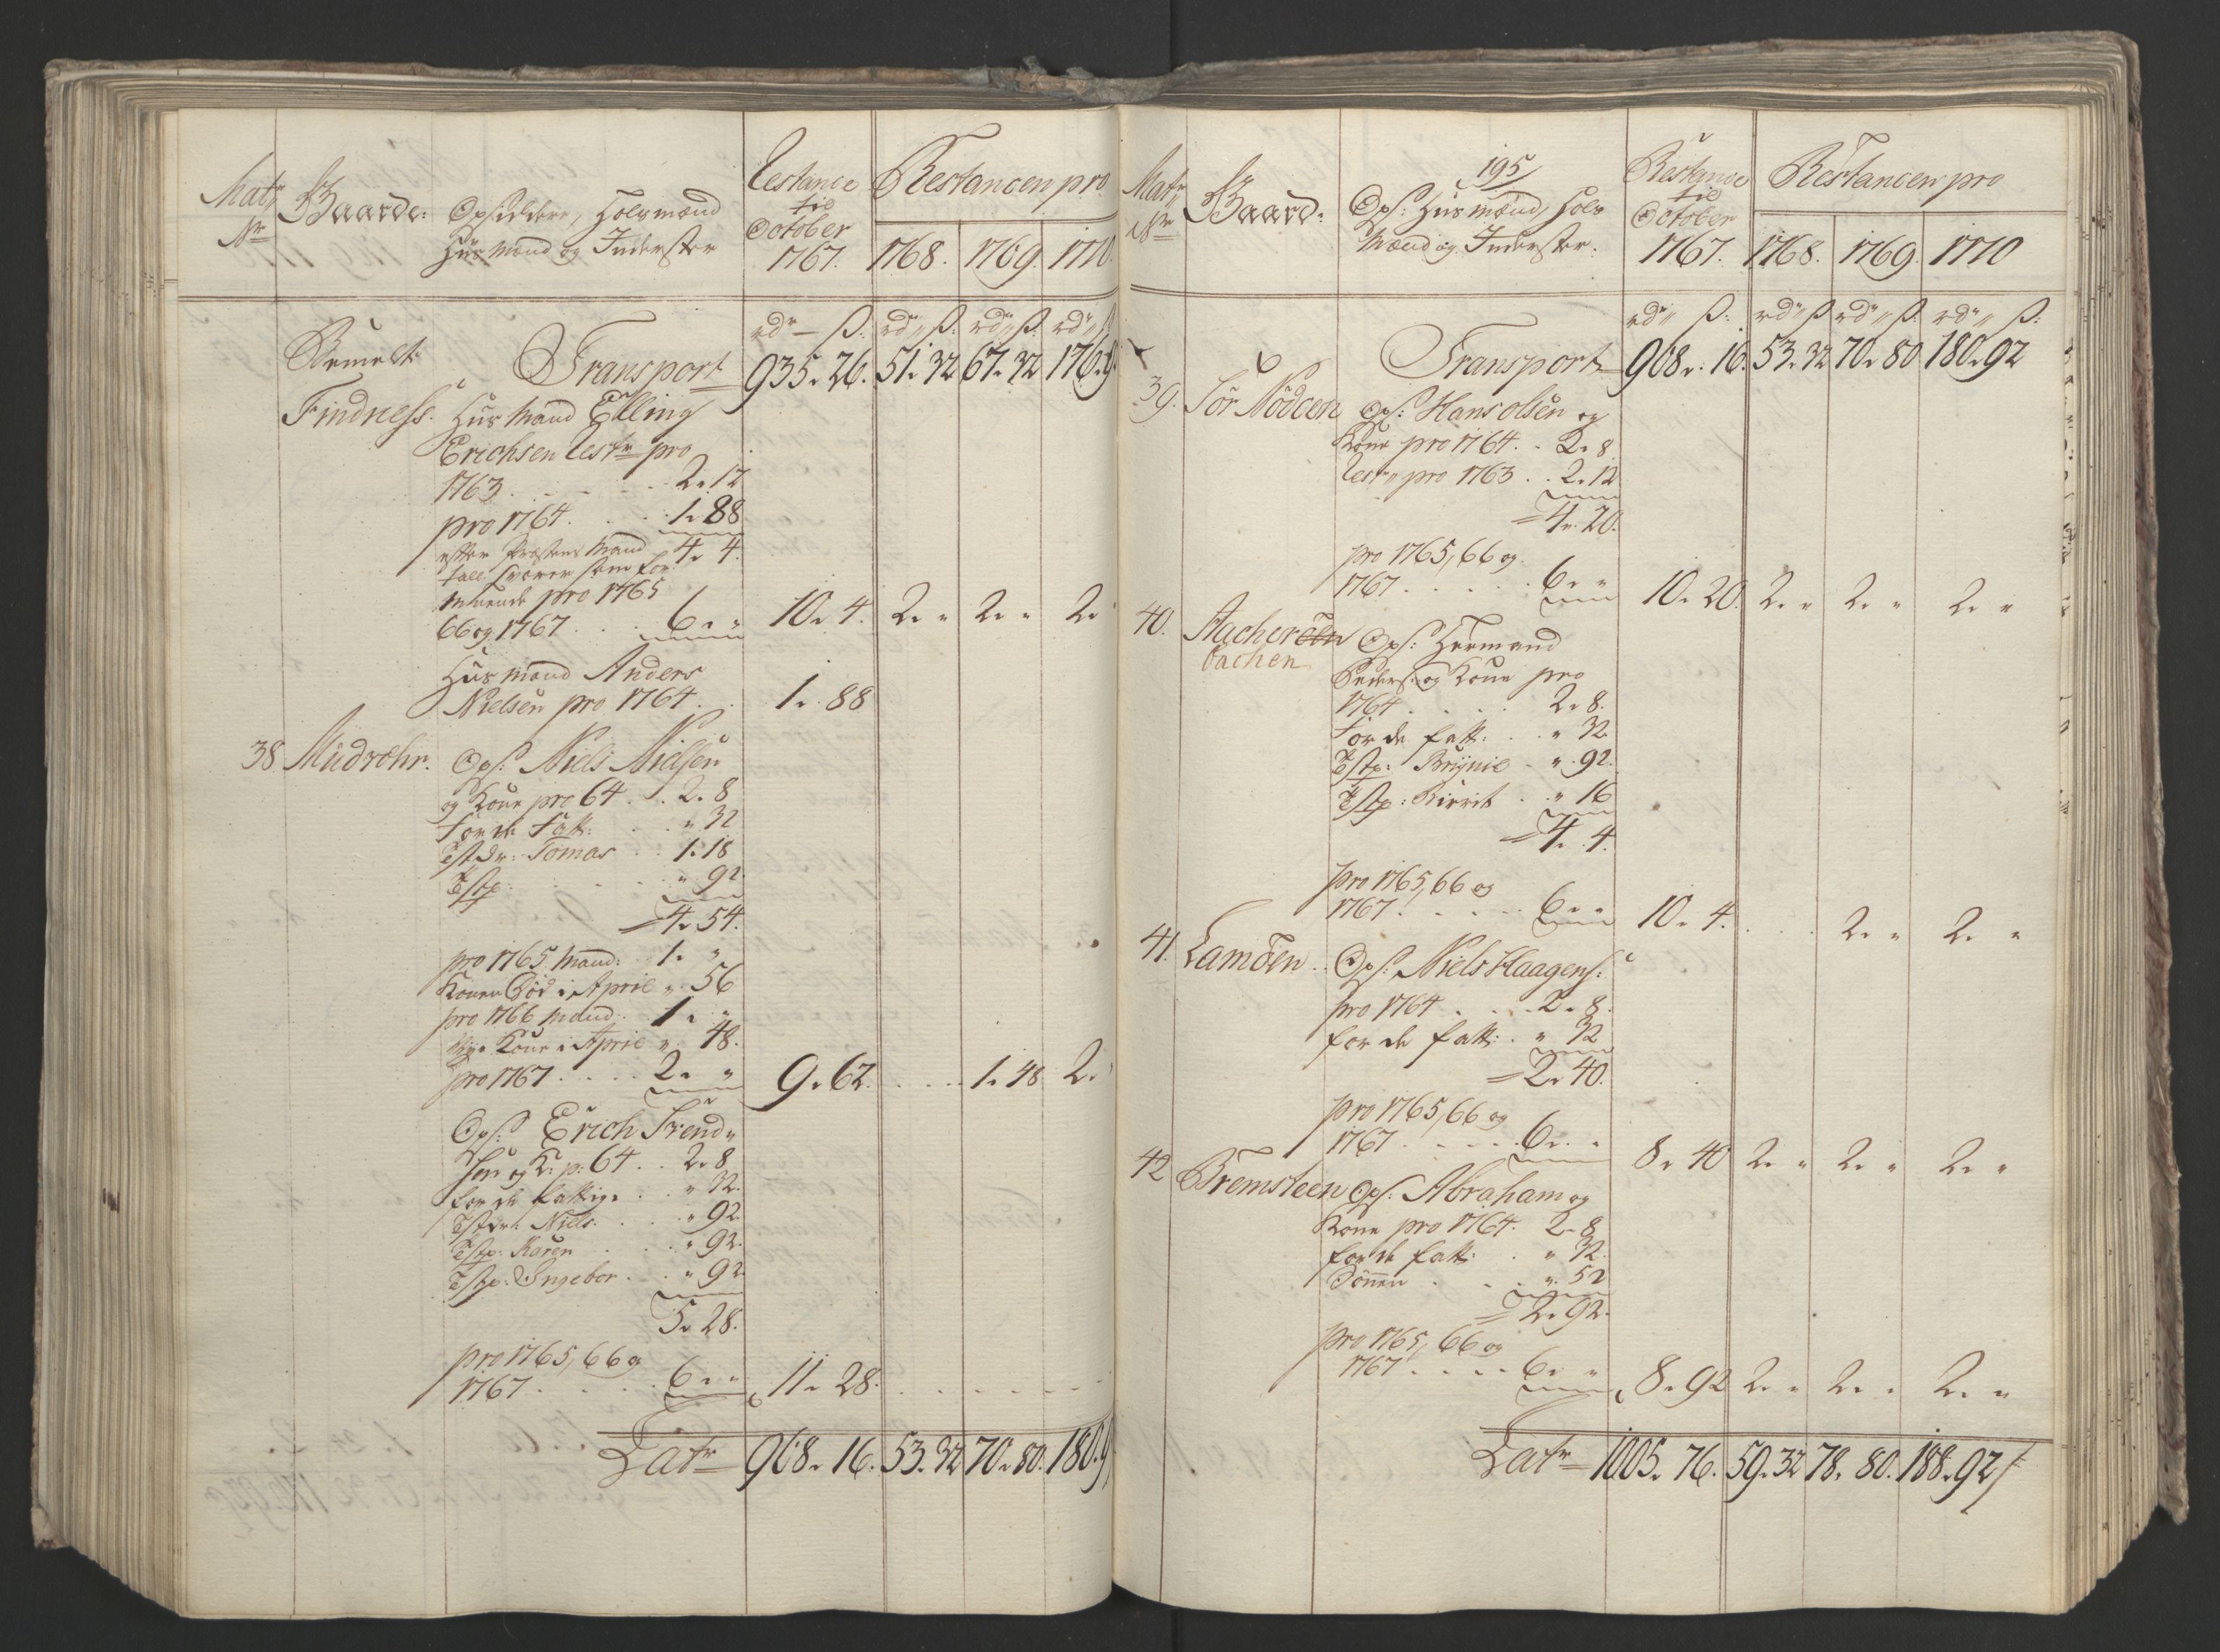 Matr Nr
Gaarde:
Opsidere, Holsmænd
Huusmænd og Inderster
Restance
til
October
1767.
Restancen pro
1768. 1769. 1770.
rdr — ß: rdr ß: rdr ß rdr ß
Bemelte
Transport 935 " 26. 51 " 32 67 " 32 176 " 9
Findness. Huusmand Elling
Erichsen Rest pro
1763 . . . 2 " 12
pro 1764 . . . 1 " 88
efter Præstens Mand 4 " 4.
tall svarer som for
pro 1765
66 og 1767 . . 6 " " 10 " 4. 2 " " 2 " " 2 "
Huusmand Anders
Nielsen pro 1764 . . 1 " 88
38 Midrøhr. Ops: Niels Nielsen
og Kone pro 64 . . 2 " 8
for de Fatt: . . " 32
Tstdr: Tomas . . 1 " 18
Tstp: . . " 92.
4 " 54.
pro 1765 Mand: 1 " "
Konen død i April " 56
pro 1766 Mand . 1 " "
Nye Kone i April " 48.
pro 1767 . . . . 2 " " 9 " 62. . . . 1 " 48 2 "
Ops: Erich Svend"
sen og K: p: 64 . . 2 " 8
for de fattige . . " 32.
Tstdr: Niels . . " 92
Tstp: Karen . . " 92.
Tstp: Ingebor . . " 92
5 " 28.
pro 1765, 66 og
1767 . . . . 6 " " 11 " 28. . . . . . .
Latr 968 " 16. 53 " 32 70 " 80. 180 " 9
Matr Nr
Gaard:
195
Ops: Huusmænd, Hols
Mænd og Inderster.
Restance
til
October
1767.
Restancen pro
1768. 1769. 1770
rdr " ß: rdr ß rdr " ß: rdr " ß:
Transport 968 " 16. 53 " 32 70 " 80 180 " 92
39. Sør Nødeen Ops: Hans Olsen og
Kone pro 1764 . . 2 " 8.
Rest " pro 1763 . . 2 " 12
4 " 20.
pro 1765, 66 og
1767 . . . . 6 " " 10 " 20. 2 " " 2 " " 2 " "
40. Aacheröen Ops: Hermand
bachen
Peders: og Kone pro
1764 . . . . 2 " 8.
For de fatt: . . " 32
Tstp: Brynie . " 92.
Tstp: Birrit . . " 16
4 " 4.
pro 1765, 66 og
1767 . . . . 6 " " 10 " 4. . . . 2 " " 2 " "
41. Lamöen . . Ops: Niels Haagens:
pro 1764 . . . 2 " 8.
for de fatt: . " 32
2 " 40.
pro 1765, 66 og
1767 . . . . 6 " " 8 " 40 2 " " 2 " " 2 " "
42 Bremsteen Ops: Abraham og
Kone pro 1764. 2 " 8.
for de fatt: . " 32.
Sönnen . . . " 52
2 " 92.
pro 1765, 66 og
1767 . . . . 6 " " 8 " 92 2 " " 2 " " 2 " "
Latr 1005 " 76. 59 " 32 78 " 80. 188 " 92